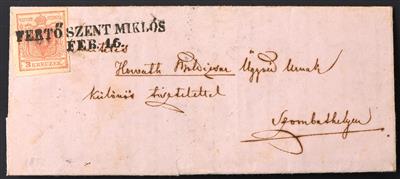 FERTÖ SZENT MIKLÓS
FEB. 16.
3 KREUZER
Horváth Boldizsár Ügyvéd Urnak
különös tisztelettel
Szombathelyen